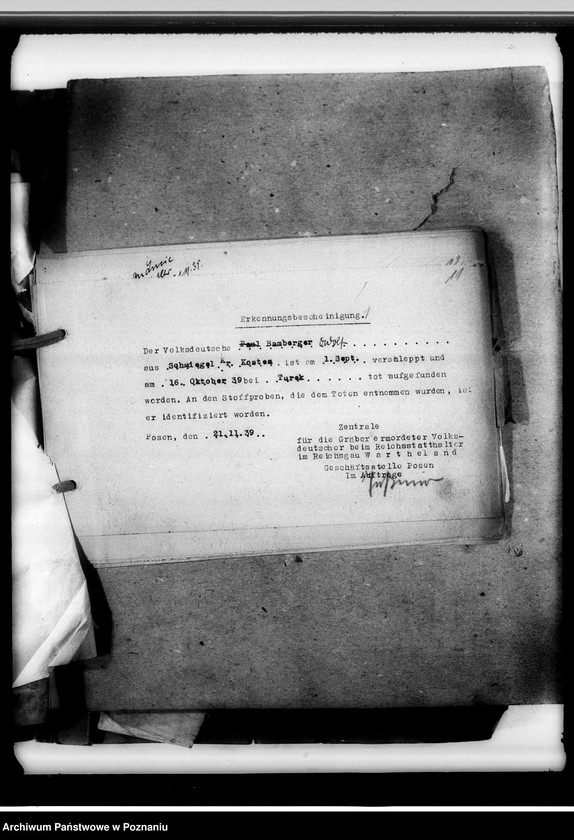 Erkennungsbescheinigung.
Der Volksdeutsche Paul Bamberger
aus Schmiegel Kr. Kosten ist am 1.Sept. verschleppt und
am 16. Oktober 39 bei Turek tot aufgefunden
worden. An den Stoffproben, die dem Toten entnommen wurden, ist
er identifiziert worden.
Posen, den 21.11.39.
Zentrale
für die Gräber ermordeter Volks-
deutscher beim Reichsstatthalter
im Reichsgau Wartheland
Geschäftsstelle Posen
Im Auftrage
Archiwum Państwowe w Poznaniu